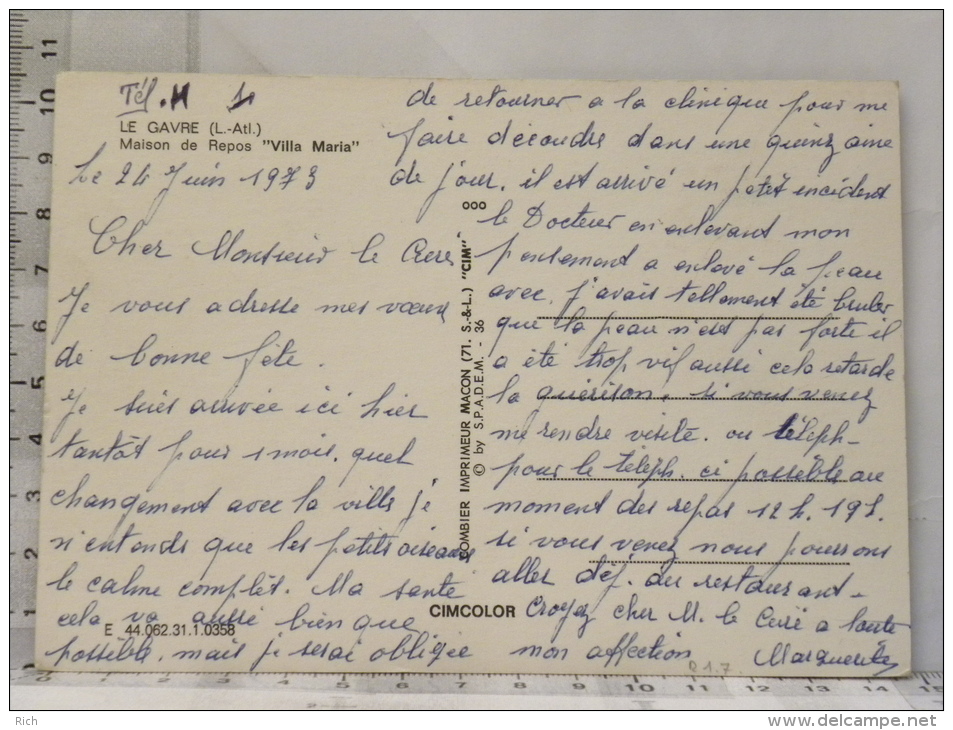 Tél. N 1
LE GAVRE (L.-Atl.)
Maison de Repos "Villa Maria"
Le 24 Juin 1973
Cher Monsieur le Curé
Je vous adresse mes vœux
de bonne fête.
Je suis arrivée ici hier
tantôt pour 1 mois. quel
changement avec la ville je
n'entends que les petits oiseaux
le calme complêt. Ma santé
cela va aussi bien que
possible. mais je serai obligée
de retourner a la clinique pour me
faire découdre dans une quinzaine
de jour. il est arrivé un petit incident
le Docteur en enlevant mon
pensement a enlevé la peau
avec. j'avais tellement été bruler
que la peau n'est pas forte il
a été trop vif aussi cela retarde
la guérison. si vous venez
me rendre visite. ou téléph-
pour le téléph. ci possible au
moment des repas 12 h. 19 h.
si vous venez nous pourrons
aller déj. au restaurant-
Croyez cher M. le Curé a toute
mon affection Marguerite
ooo
COMBIER IMPRIMEUR MACON (71. S.-&-L.) "CIM"
© by S.P.A.D.E.M. - 36
CIMCOLOR
E 44.062.31.1.0358
Rich
www.delcampe.net